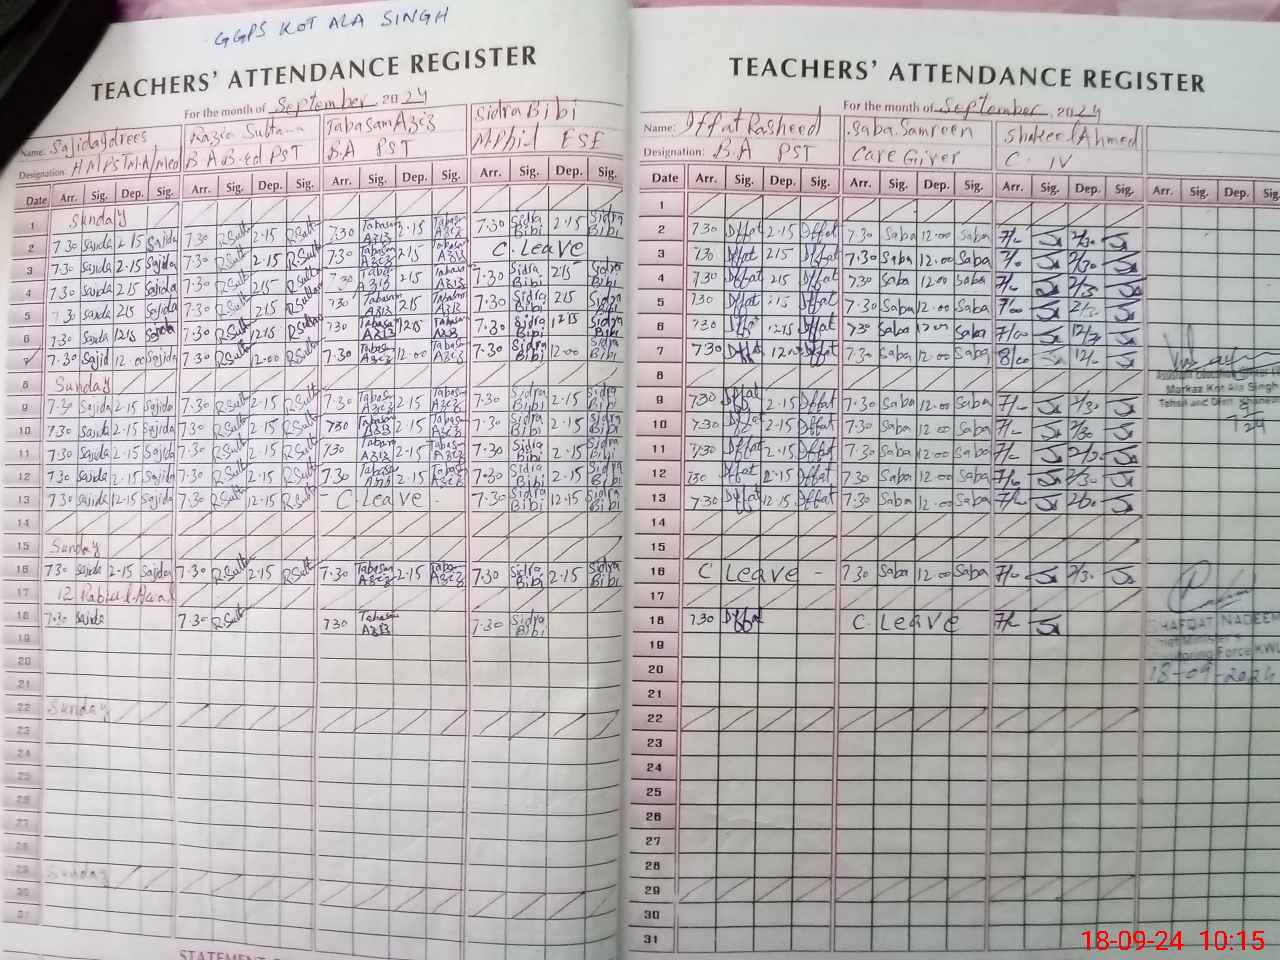 GGPS KOT ALA SINGH
TEACHERS' ATTENDANCE REGISTER
For the month of September 2024
Name: Sajida Idrees Razia Sultana Tabasam Aziz Sidra Bibi
Designation: B.A B.ed PST B.A PST M.Phil ESE
Date Arr. Sig. Dep. Sig. Arr. Sig. Dep. Sig. Arr. Sig. Dep. Sig. Arr. Sig. Dep. Sig.
1 Sunday
2 7.30 Sajida 2.15 Sajida 7.30 RSult 2.15 RSult 7.30 Tabasam Aziz 2.15 Tabasam Aziz 7.30 Sidra Bibi 2.15 Sidra Bibi
3 7.30 Sajida 2.15 Sajida 7.30 RSult 2.15 RSult 7.30 Tabasam Aziz 2.15 Tabasam Aziz C. Leave
4 7.30 Sajida 2.15 Sajida 7.30 RSult 2.15 RSult 7.30 Tabasam Aziz 2.15 Tabasam Aziz 7.30 Sidra Bibi 2.15 Sidra Bibi
5 7.30 Sajida 2.15 Sajida 7.30 RSult 2.15 RSult 7.30 Tabasam Aziz 2.15 Tabasam Aziz 7.30 Sidra Bibi 2.15 Sidra Bibi
6 7.30 Sajida 12.15 Sajida 7.30 RSult 12.15 RSult 7.30 Tabasam Aziz 12.15 Tabasam Aziz 7.30 Sidra Bibi 12.15 Sidra Bibi
7 7.30 Sajid 12.00 Sajida 7.30 RSult 12.00 RSult 7.30 Tabasam Aziz 12.00 Tabasam Aziz 7.30 Sidra Bibi 12.00 Sidra Bibi
8 Sunday
9 7.30 Sajida 2.15 Sajida 7.30 RSult 2.15 RSult 7.30 Tabasam Aziz 2.15 Tabasam Aziz 7.30 Sidra Bibi 2.15 Sidra Bibi
10 7.30 Sajida 2.15 Sajida 7.30 RSult 2.15 RSult 7.30 Tabasam Aziz 2.15 Tabasam Aziz 7.30 Sidra Bibi 2.15 Sidra Bibi
11 7.30 Sajida 2.15 Sajida 7.30 RSult 2.15 RSult 7.30 Tabasam Aziz 2.15 Tabasam Aziz 7.30 Sidra Bibi 2.15 Sidra Bibi
12 7.30 Sajida 2.15 Sajida 7.30 RSult 2.15 RSult 7.30 Tabasam Aziz 2.15 Tabasam Aziz 7.30 Sidra Bibi 2.15 Sidra Bibi
13 7.30 Sajida 12.15 Sajida 7.30 RSult 12.15 RSult C Leave 7.30 Sidra Bibi 12.15 Sidra Bibi
14
15 Sunday
16 7.30 Sajida 2.15 Sajida 7.30 RSult 2.15 RSult 7.30 Tabasam Aziz 2.15 Tabasam Aziz 7.30 Sidra Bibi 2.15 Sidra Bibi
17 12 Rabi ul Awal
18 7.30 Sajida 7.30 RSult 7.30 Tabasam Aziz 7.30 Sidra Bibi
19
20
21
22 Sunday
23
24
25
26
27
28
29 Sunday
30
31
STATEMENT
TEACHERS' ATTENDANCE REGISTER
For the month of September 2024
Name: Iffat Rasheed Saba Samreen Shakeel Ahmed
Designation: B.A PST Care Giver C. IV
Date Arr. Sig. Dep. Sig. Arr. Sig. Dep. Sig. Arr. Sig. Dep. Sig. Arr. Sig. Dep. Sig.
1
2 7.30 Iffat 2.15 Iffat 7.30 Saba 12.00 Saba
3 7.30 Iffat 2.15 Iffat 7.30 Saba 12.00 Saba
4 7.30 Iffat 2.15 Iffat 7.30 Saba 12.00 Saba
5 7.30 Iffat 2.15 Iffat 7.30 Saba 12.00 Saba
6 7.30 Iffat 12.15 Iffat 7.30 Saba 12.00 Saba
7 7.30 Iffat 12.00 Iffat 7.30 Saba 12.00 Saba
8
9 7.30 Iffat 2.15 Iffat 7.30 Saba 12.00 Saba
10 7.30 Iffat 2.15 Iffat 7.30 Saba 12.00 Saba
11 7.30 Iffat 2.15 Iffat 7.30 Saba 12.00 Saba
12 7.30 Iffat 2.15 Iffat 7.30 Saba 12.00 Saba
13 7.30 Iffat 12.15 Iffat 7.30 Saba 12.00 Saba
14
15
16 C Leave 7.30 Saba 12.00 Saba
17
18 7.30 Iffat C. Leave
19
20
21
22
23
24
25
26
27
28
29
30
31
Markaz Kot Ala Singh
Tehsil and Distt.
SHAFQAT NADEEM
Chief Minister's
Monitoring Force KWL
18-09-2024
18-09-24 10:15